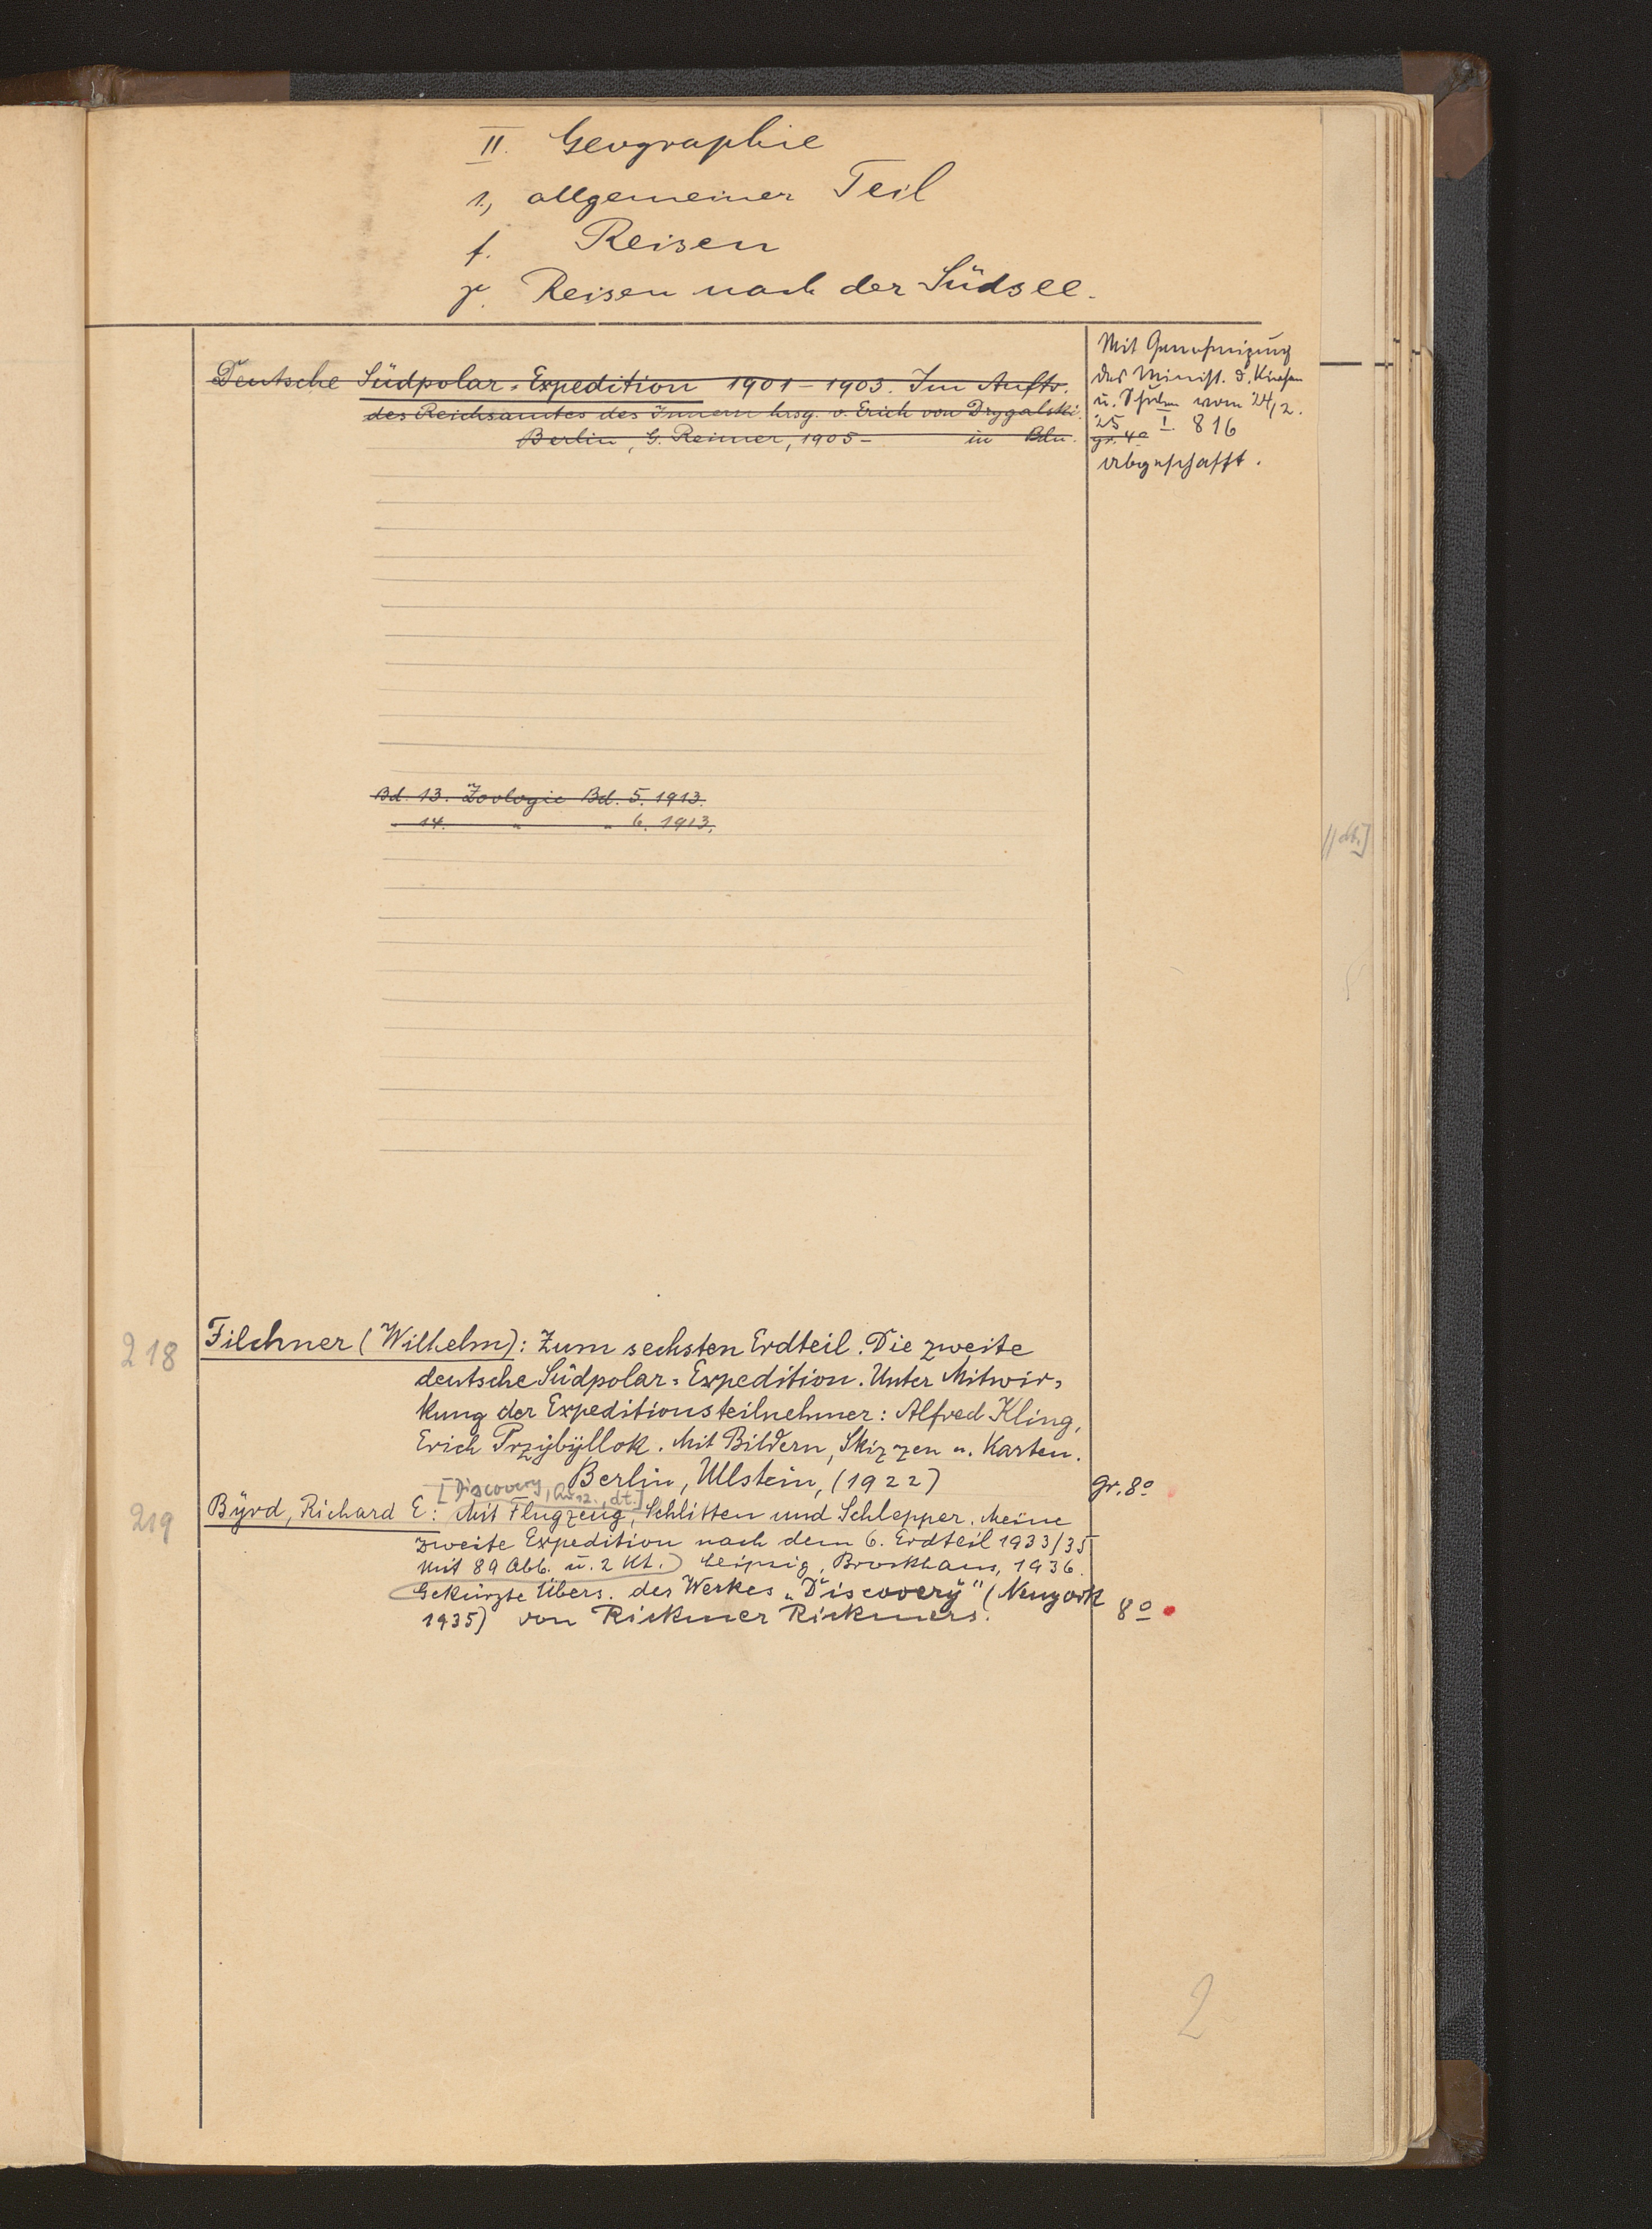 II. Geographie
1., allgemeiner Teil
f. Reisen
γ. Reisen nach der Südsee.
Deutsche Südpolar-Expedition 1901-1903. Im Auftr.
des Reichsamtes des Innern hrsg. v. Erich von Drygalski.
Berlin, G. Reimer, 1905- in Bdn.
Mit Genehmigung
des Minist. d. Kirchen
u. Schulen vom 24/2.
25 I. 816
gr. 4°
abgeschafft.
Bd. 13. Zoologie Bd. 5. 1913.
" 14. " " 6. 1913.
218
Filchner (Wilhelm): Zum sechsten Erdteil. Die zweite
deutsche Südpolar-Expedition. Unter Mitwir-
kung der Expeditionsteilnehmer: Alfred Kling,
Erich Przybyllok. Mit Bildern, Skizzen u. Karten.
Berlin, Ullstein, (1922) gr. 8°
[Discovery, dt.]
219
Byrd, Richard E: Mit Flugzeug, Schlitten und Schlepper. Meine
zweite Expedition nach dem 6. Erdteil 1933/35
Mit 89 Abb. u. 2 Kt.) Leipzig, Brockhaus, 1936.
Gekürzte Übers. des Werkes „Discovery" (Neuyork
1935) von Rickmer Rickmers. 8°
dt.]
2